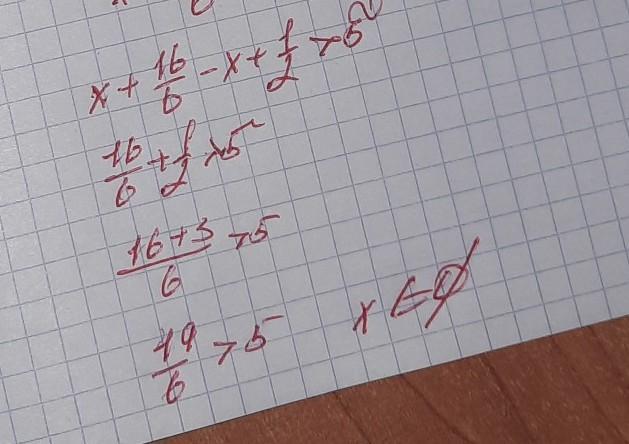 x + 16/6 - x + 1/2 > 5
16/6 + 1/2 > 5
16+3/6 > 5
19/6 > 5 x ∈ ∅